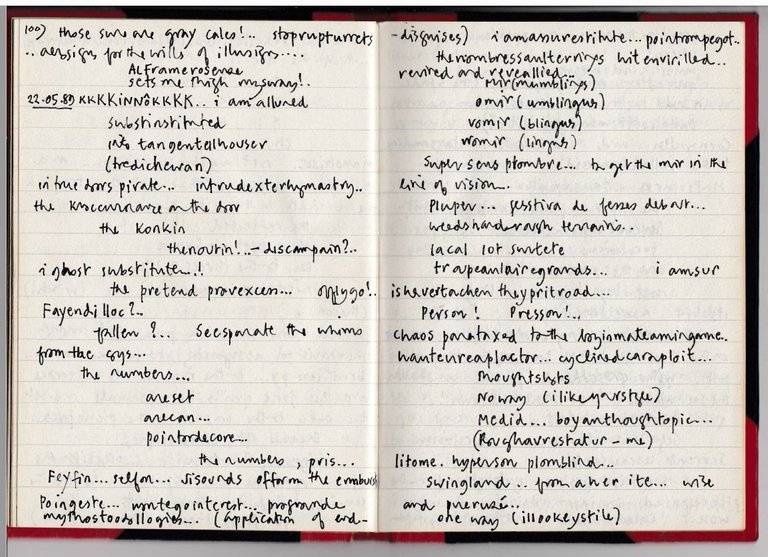 100) those suns are gray cales!.. stoprupturrets
.. aessigns for the wills of illusigns....
ALframerosense
sets me thigh mysway!.
22.05.89 KKKKiNNôKKKK.. i am allured
substinstituted
into tangentellhouser
(tredichewan)
in true doors pirate... intrudexterhymastry..
the knoccurrance on the door
the Konkin
thenoutin!..- discampain?..
i ghost substitute...!
the pretend provexcess... offlygo!..
Fayendilloc?..
fallen ?... See separate the whims
from the gys...
the numbers...
are set
arecan...
pointordecore...
the numbers, pris...
Feyfin... selfon... disounds ofform the embursh
Poingeste... wontegointerest... profrande
mythostoodsllogies... (application of end-
-disguises) i amassurestitute... pointrompegot..
thenombressaulternixes hit envirilled..
revired and reveallied...
Mir (mumblinxs)
omir (umblingus)
vomir (blingus)
womir (lingus)
Super sens plombre... to get the mir in the
line of vision..
Pluper... festiva de fesses debart...
weedshardrough terrains..
lacal lot surtete
troupeaulairegrands... i amsur
ishevertachen theypritroad...
Person! Presson!..
chaos parataxed to the boyinmateamingame..
hauteureaplactor... cyclined caraploit...
thoughtslsts
No way (ilikeyarstyle)
Medid... boyanthoughtopic...
(Roughavrestatur - me)
litome. hyperson plomblind...
swingland.. from a her ite... wise
and pueruzé...
one way (illookeystile)